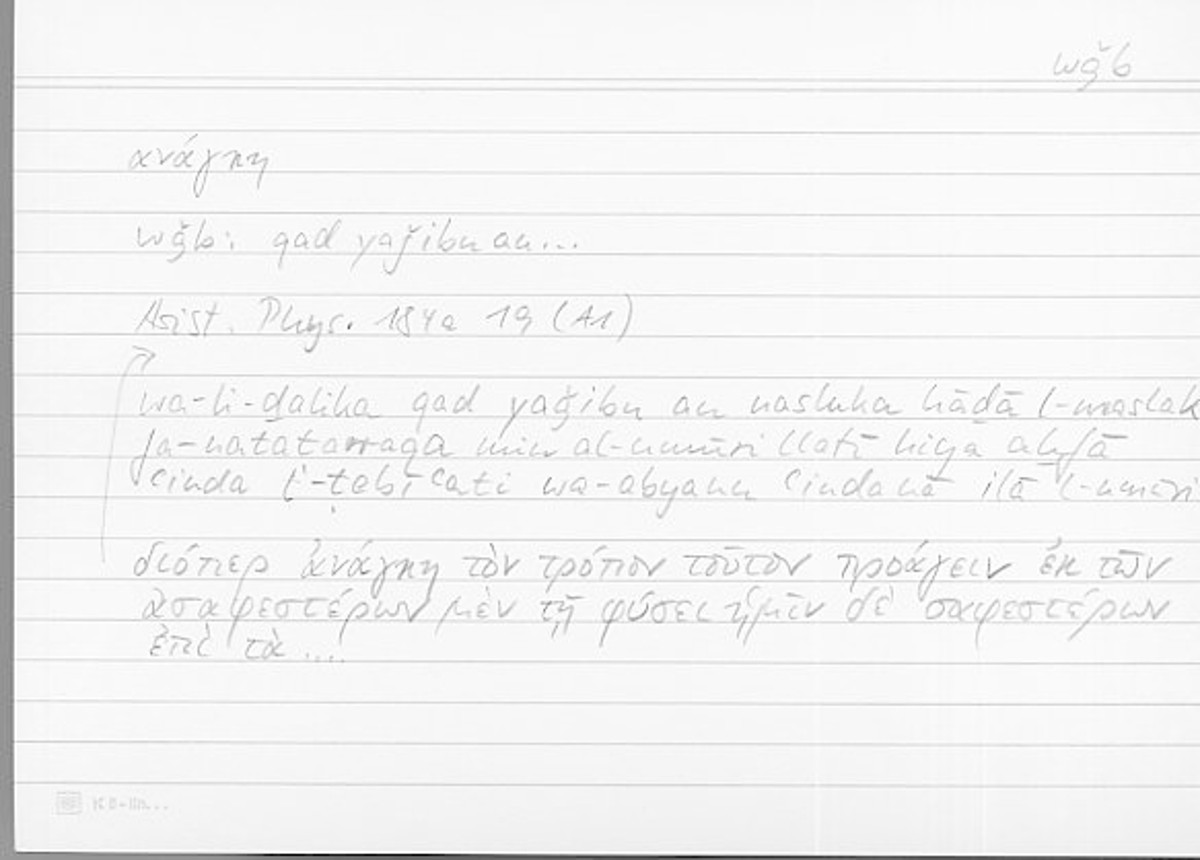 wǧb
ἀνάγκη
wǧb: qad yaǧibu an...
Arist. Phys. 184a 19 (A1)
wa-li-ḏālika qad yaǧibu an nasluka hāḏā l-maslak
fa-natatarraqa min al-umūri llatī hiya aḫfā
ʿinda ṭ-ṭabīʿati wa-abyanu ʿindanā ilā l-umūri
διόπερ ἀνάγκη τὸν τρόπον τοῦτον προάγειν ἐκ τῶν
ἀσαφεστέρων μὲν τῇ φύσει ἡμῖν δὲ σαφεστέρων
ἐπὶ τὰ ....